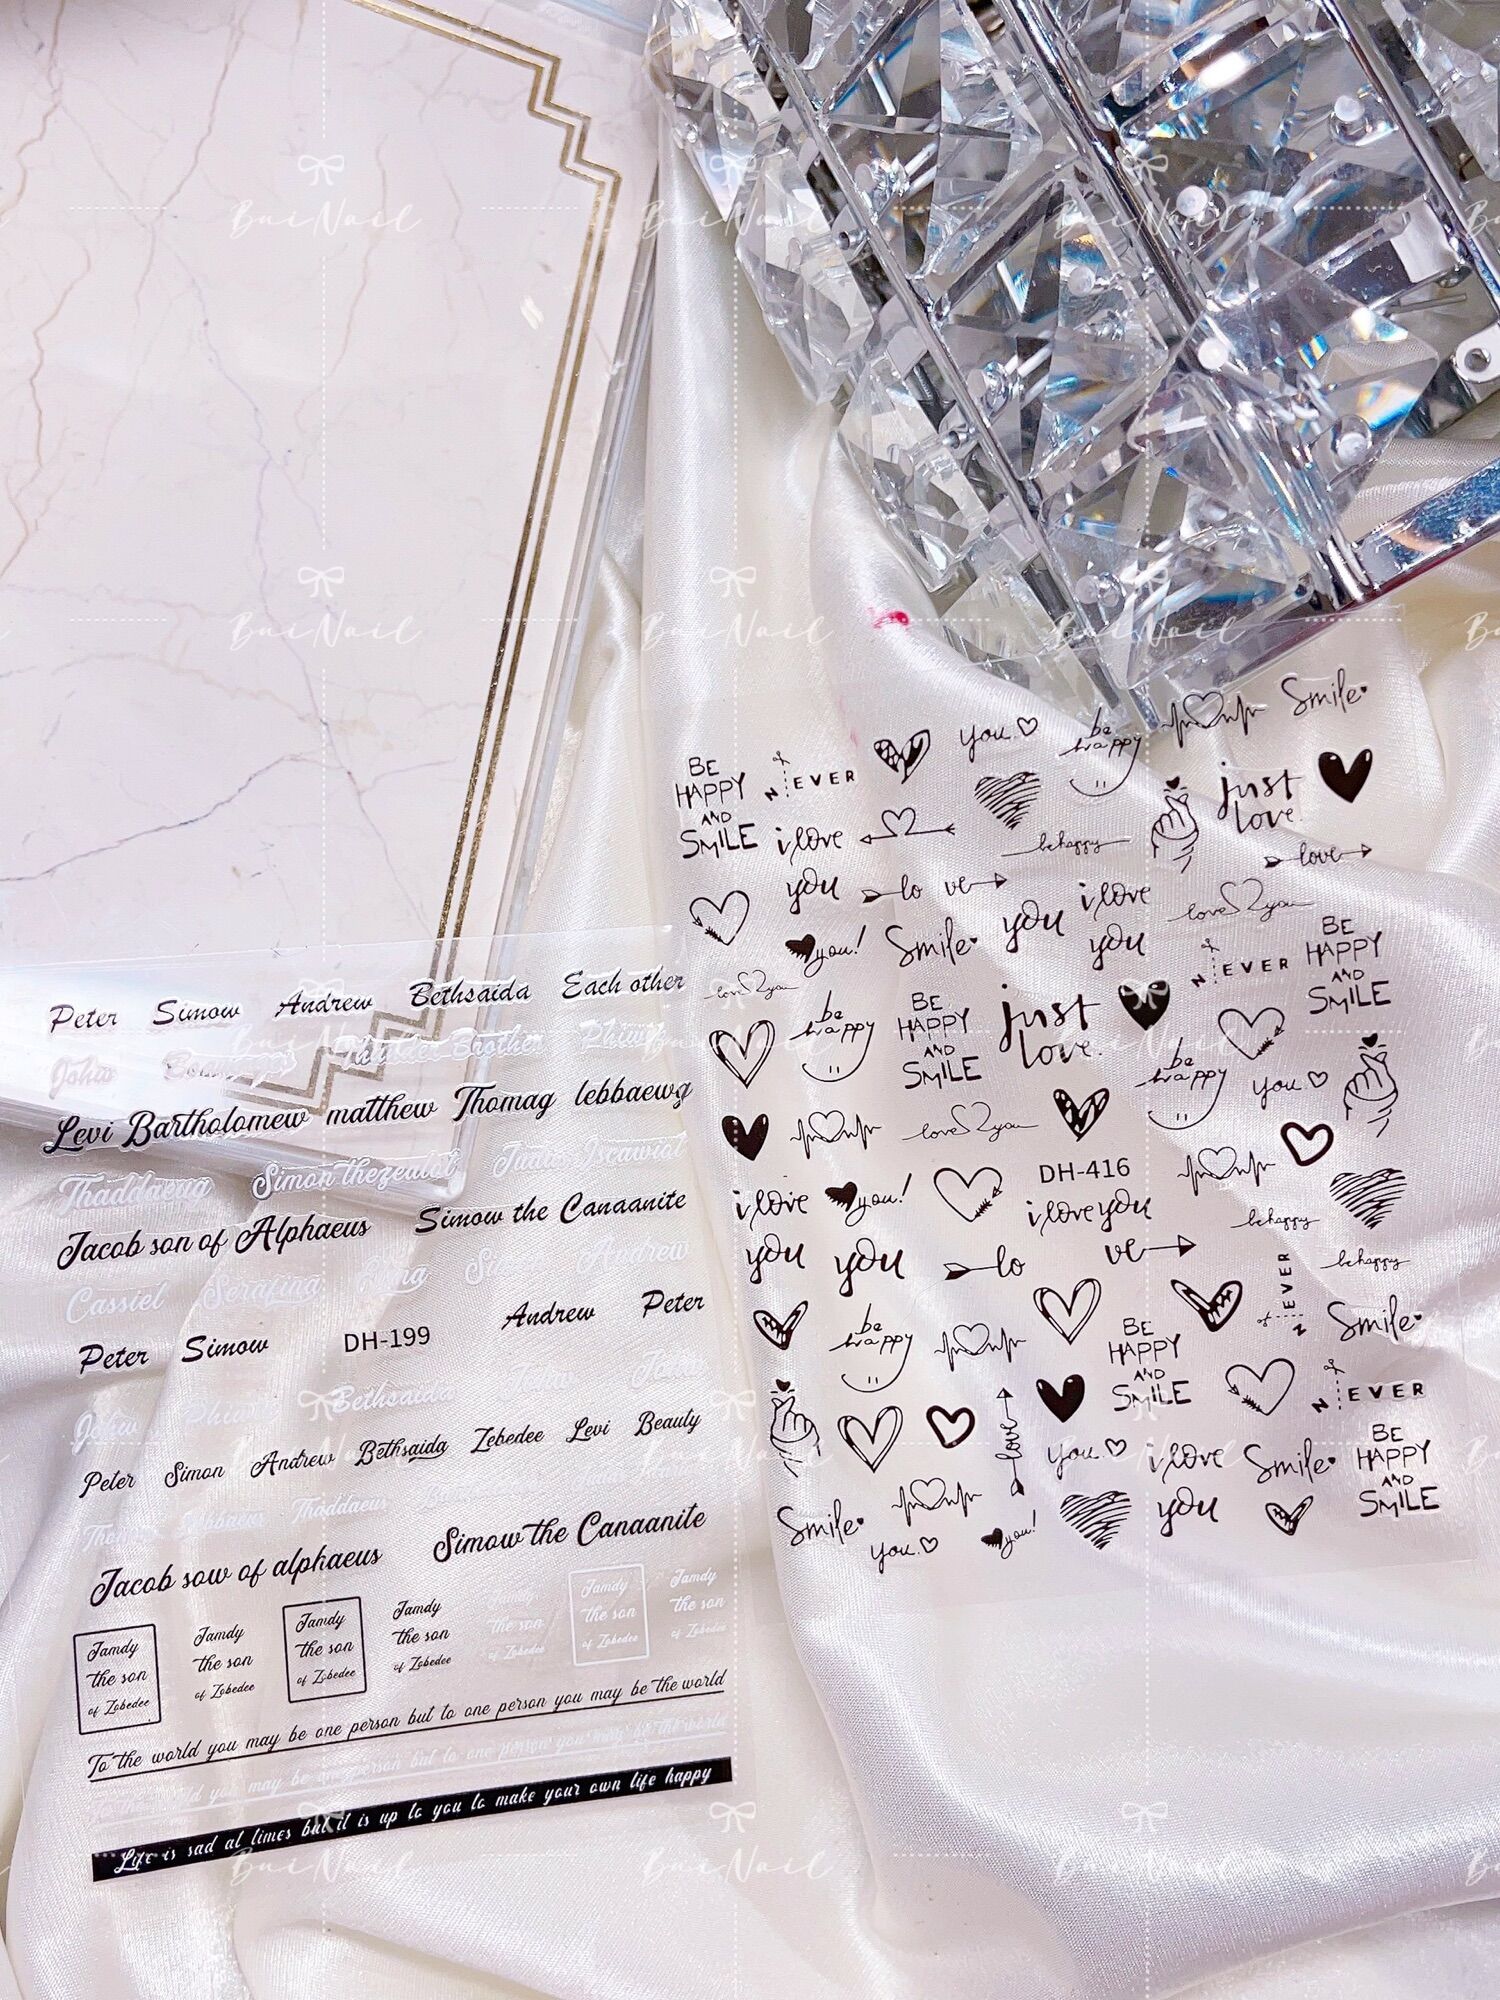 Peter Simow Andrew Bethsaida Each other
Johw
Thunder Brother Phiww
Levi Bartholomew matthew Thomag lebbaewg
Thaddaeug Simon thezealot Judas Iscawiot
Jacob son of Alphaeus Simow the Canaanite
Cassiel Serafina
Andrew
Peter Simow DH-199 Andrew Peter
Johw Bethsaida
Peter Simon Andrew Bethsaida Zebedee Levi Beauty
Thaddaeus
Jacob sow of alphaeus Simow the Canaanite
Jamdy
the son
of Zebedee
Jamdy
the son
of Zebedee
Jamdy
the son
of Zebedee
Jamdy
the son
of Zebedee
Jamdy
the son
of Zebedee
Jamdy
the son
of Zebedee
To the world you may be one person but to one person you may be the world
To the world you may be one person but to one person you may be the world
Life is sad at times but it is up to you to make your own life happy
BE
HAPPY
AND
SMILE
NEVER
you
be
happy
Smile
i love
you
behappy
just
love
love
lo ve
you
i love
you
love you
you!
Smile
NEVER
BE
HAPPY
AND
SMILE
love you
be
happy
BE
HAPPY
AND
SMILE
just
love
be
happy
you
love you
DH-416
i love
you
you!
you
i love you
behappy
lo ve
behappy
NEVER
be
happy
BE
HAPPY
AND
SMILE
Smile
NEVER
love
you
i love
you
Smile
BE
HAPPY
AND
SMILE
Smile
you
you!
Bui Nail
Bui Nail
Bui Nail
Bui Nail
Bui Nail
Bui Nail
Bui Nail
Bui Nail
Bui Nail